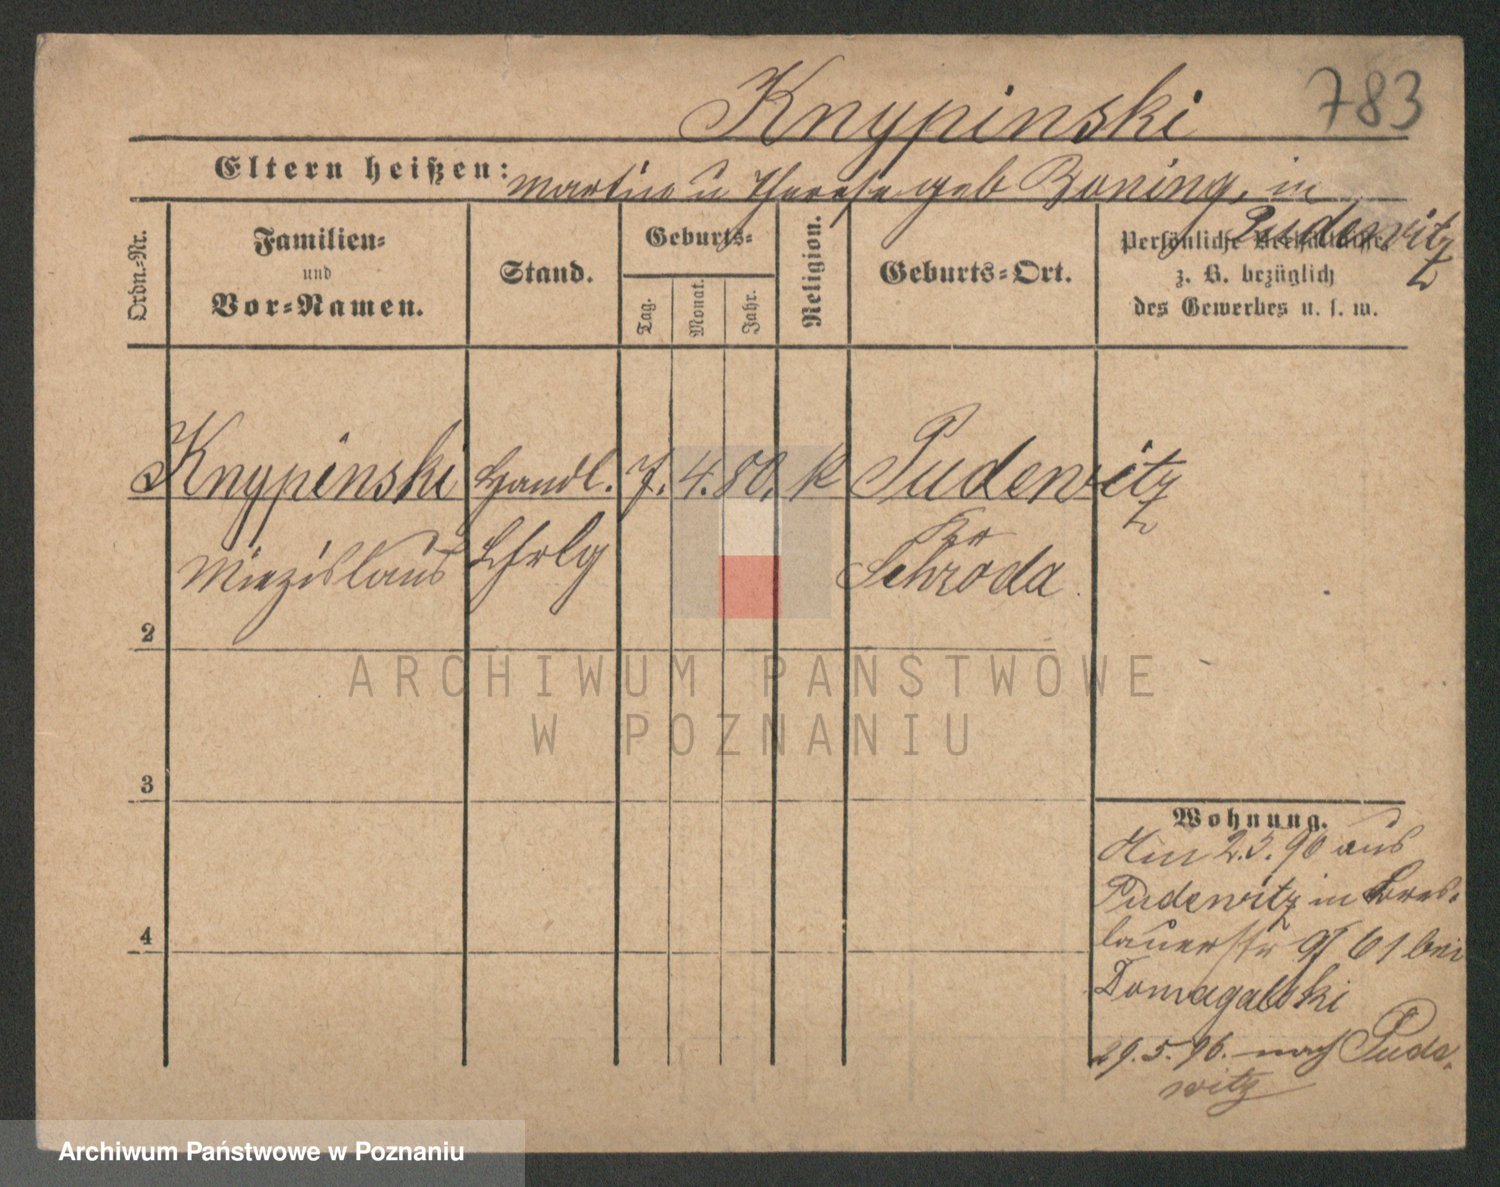 Knypinski 783
Eltern heißen: Martin u Therese geb Boning, in
Pudewitz
Ordn.-Nr.
Familien-
und
Vor-Namen.
Stand.
Geburts-
Tag.
Monat.
Jahr.
Religion.
Geburts-Ort.
Persönliche Verhältnisse
z. B. bezüglich
des Gewerbes u. s. w.
Knypinski Handl. 7. 4. 80. k Pudewitz
Miezislaus Lhrlg Kr
Schroda
2
3
4
Wohnung.
2.5.96 aus
Pudewitz in Bres-
lauerstr 9 61 bei
Domagalski
29.5.96. nach Pude-
witz
ARCHIWUM PAŃSTWOWE
W POZNANIU
Archiwum Państwowe w Poznaniu